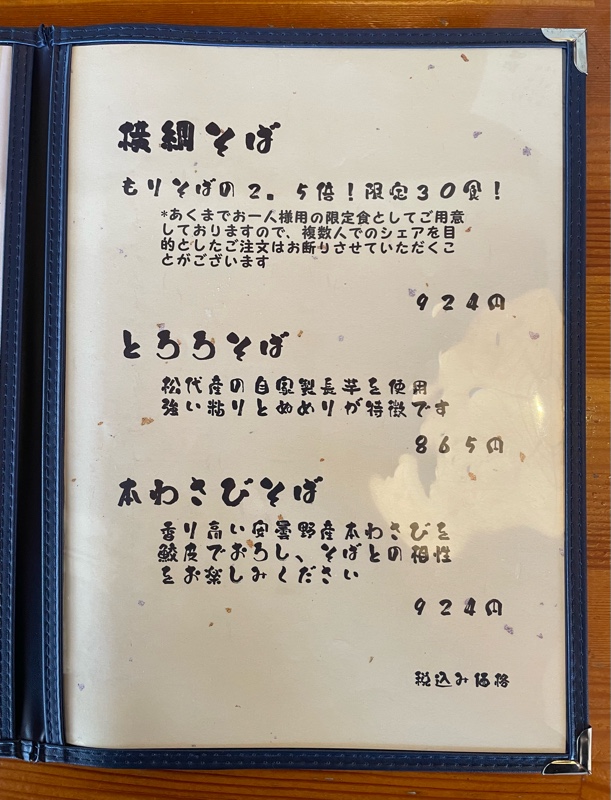 横綱そば
もりそばの2.5倍!限定30食!
*あくまでお一人様用の限定食としてご用意
しておりますので、複数人でのシェアを目
的としたご注文はお断りさせていただくこ
とがございます
924円
とろろそば
松代産の自家製長芋を使用
強い粘りとぬめりが特徴です
865円
本わさびそば
香り高い安曇野産本わさびを
鮫皮でおろし、そばとの相性
をお楽しみください
924円
税込み価格